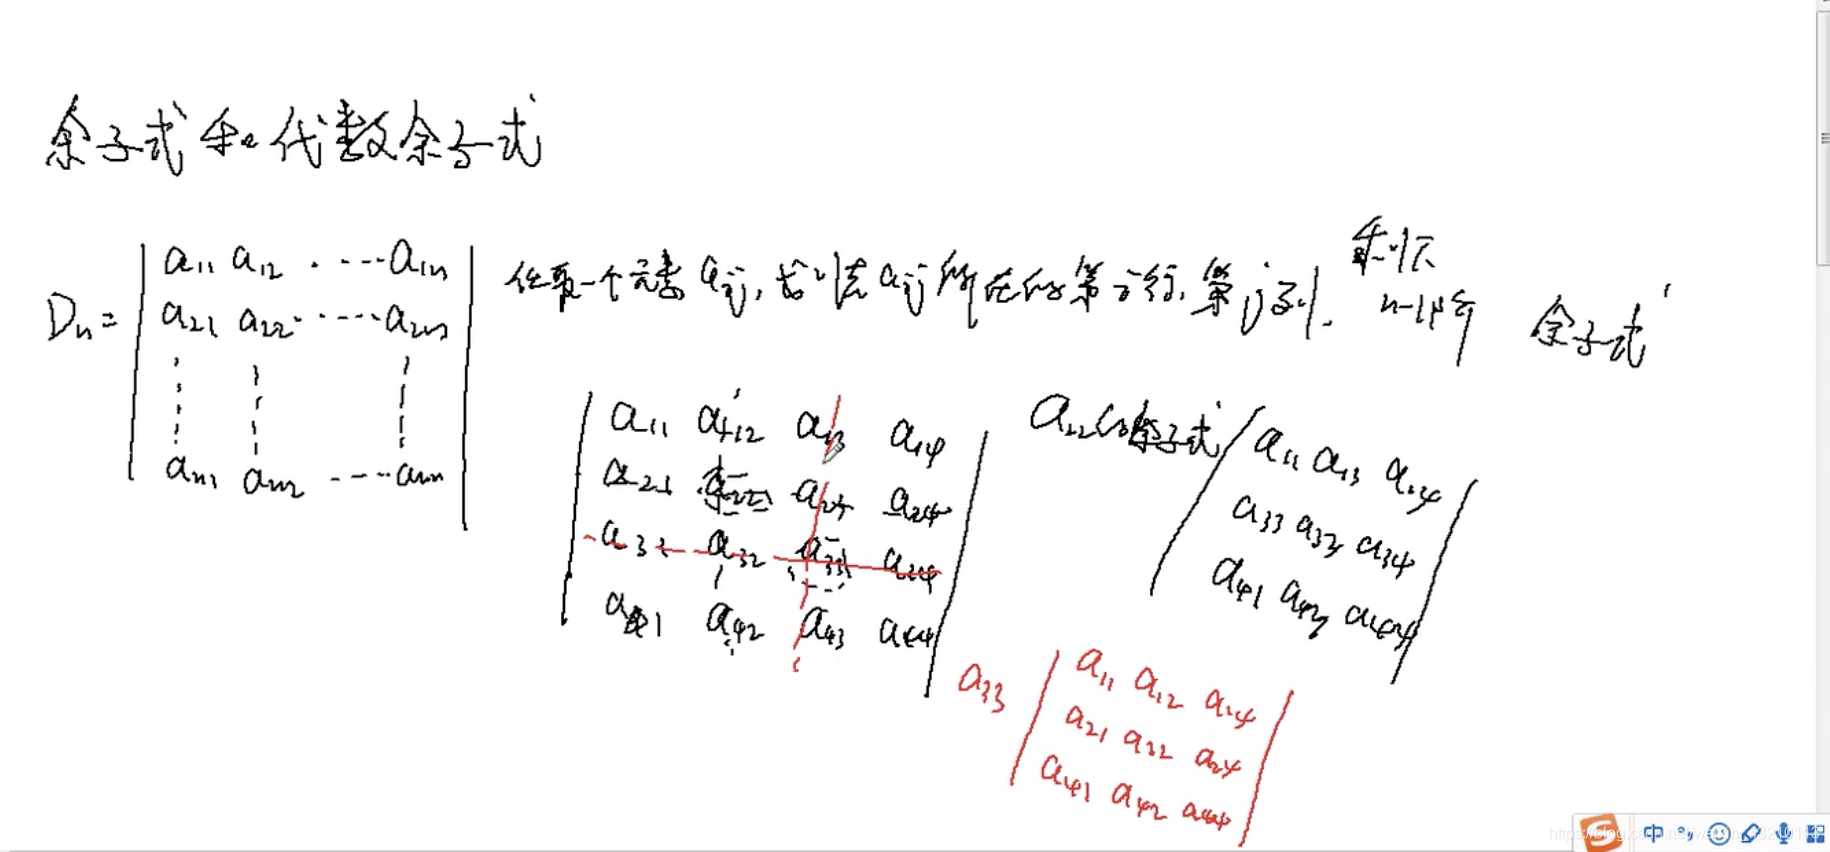 余子式和代数余子式
Dn= | a11 a12 ···· a1n |
| a21 a22 ····· a2n |
| an1 an2 ···· ann |
任取一个元素 aij, 划去 aij 所在的第i行, 第j列, 剩下 n-1阶 余子式
| a11 a12 a13 a14 |
| a21 a22 a23 a24 |
| a31 a32 a33 a34 |
| a41 a42 a43 a44 |
a22的余子式 | a11 a13 a14 |
| a33 a32 a34 |
| a41 a42 a44 |
a33 | a11 a12 a14 |
| a21 a22 a24 |
| a41 a42 a44 |
中